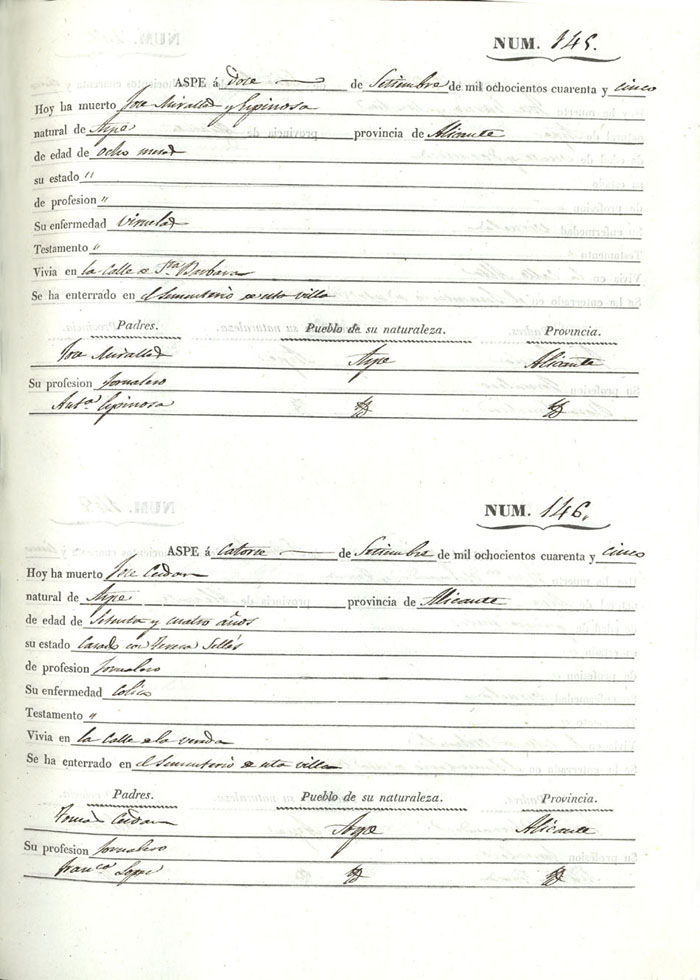 NUM. 145.
ASPE á Doce de Setiembre de mil ochocientos cuarenta y cinco
Hoy ha muerto Jose Miralles y Espinosa
natural de Aspe provincia de Alicante
de edad de ocho meses
su estado "
de profesion "
Su enfermedad viruelas
Testamento "
Vivia en la Calle de Sta. Barbara
Se ha enterrado en el Sementerio de esta villa
Padres. Pueblo de su naturaleza. Provincia.
Jose Miralles Aspe Alicante
Su profesion Jornalero
Anta. Espinosa
NUM. 146.
ASPE á Catorce de Setiembre de mil ochocientos cuarenta y cinco
Hoy ha muerto Jose
natural de Aspe provincia de Alicante
de edad de y cuatro años
su estado Casado con Teresa Sellés
de profesion Jornalero
Su enfermedad Colico
Testamento "
Vivia en la Calle de la
Se ha enterrado en el Sementerio de esta villa
Padres. Pueblo de su naturaleza. Provincia.
Tomas Aspe Alicante
Su profesion Jornalero
Franca. Lopez